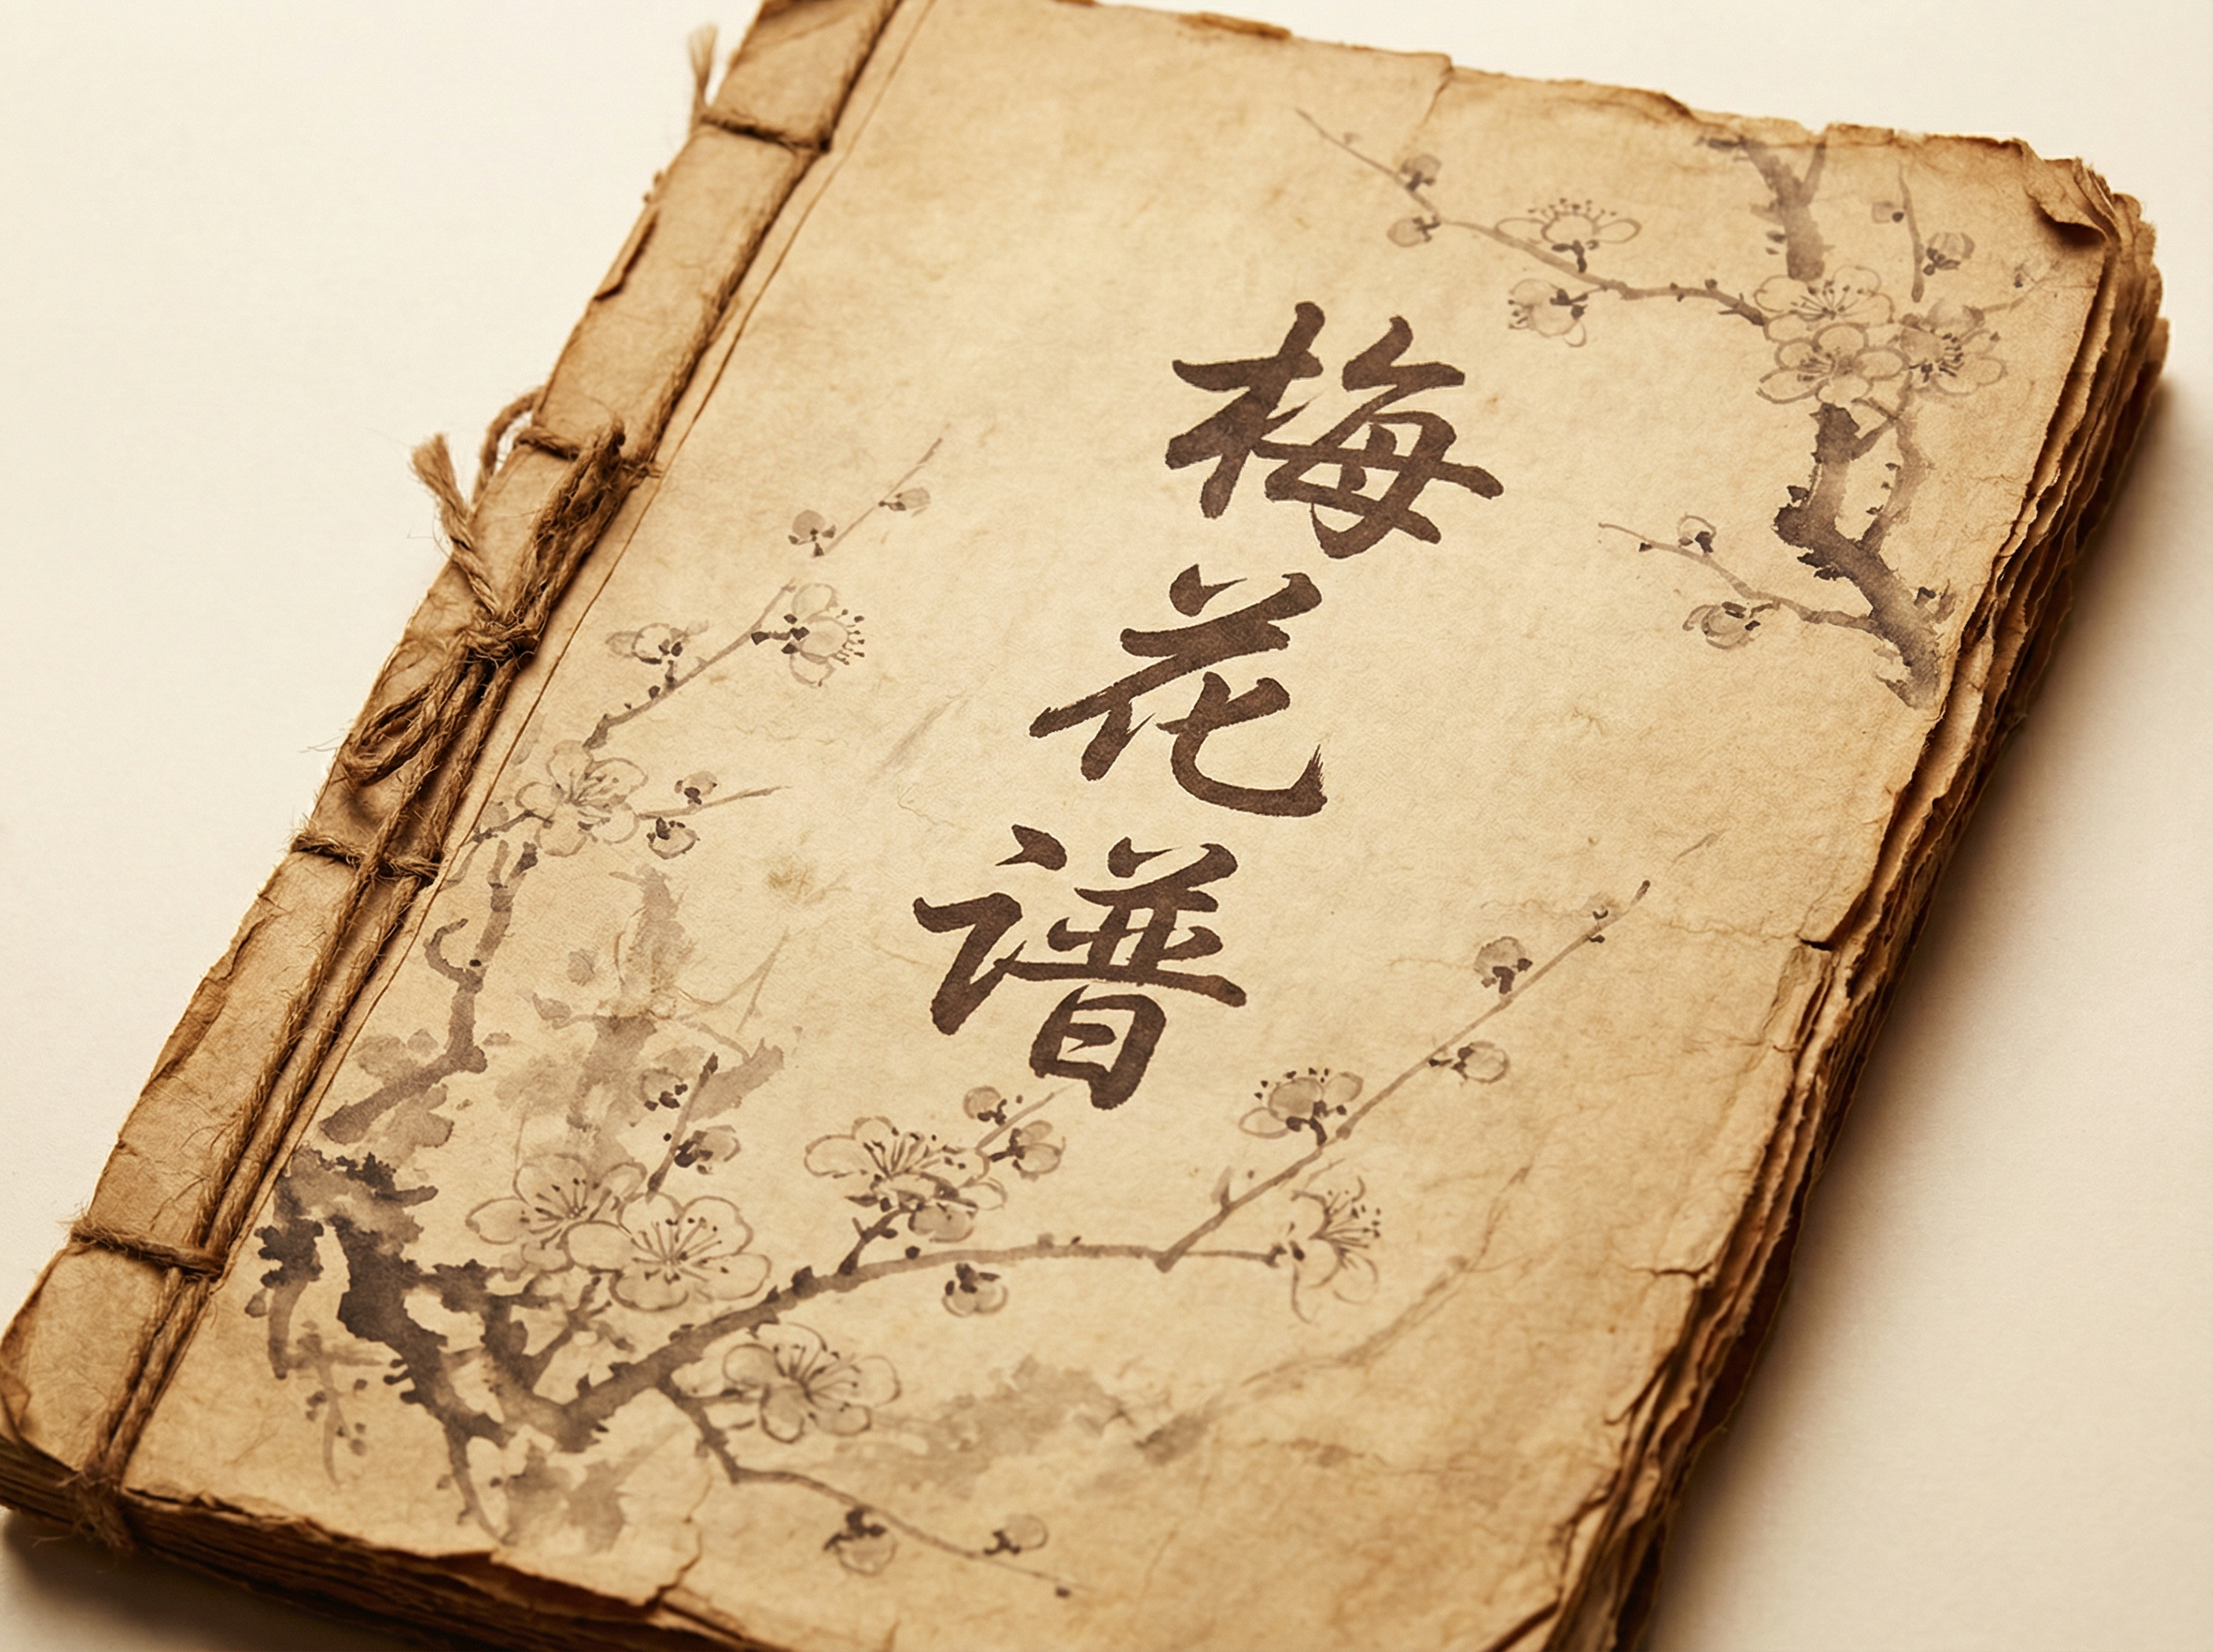 梅花谱